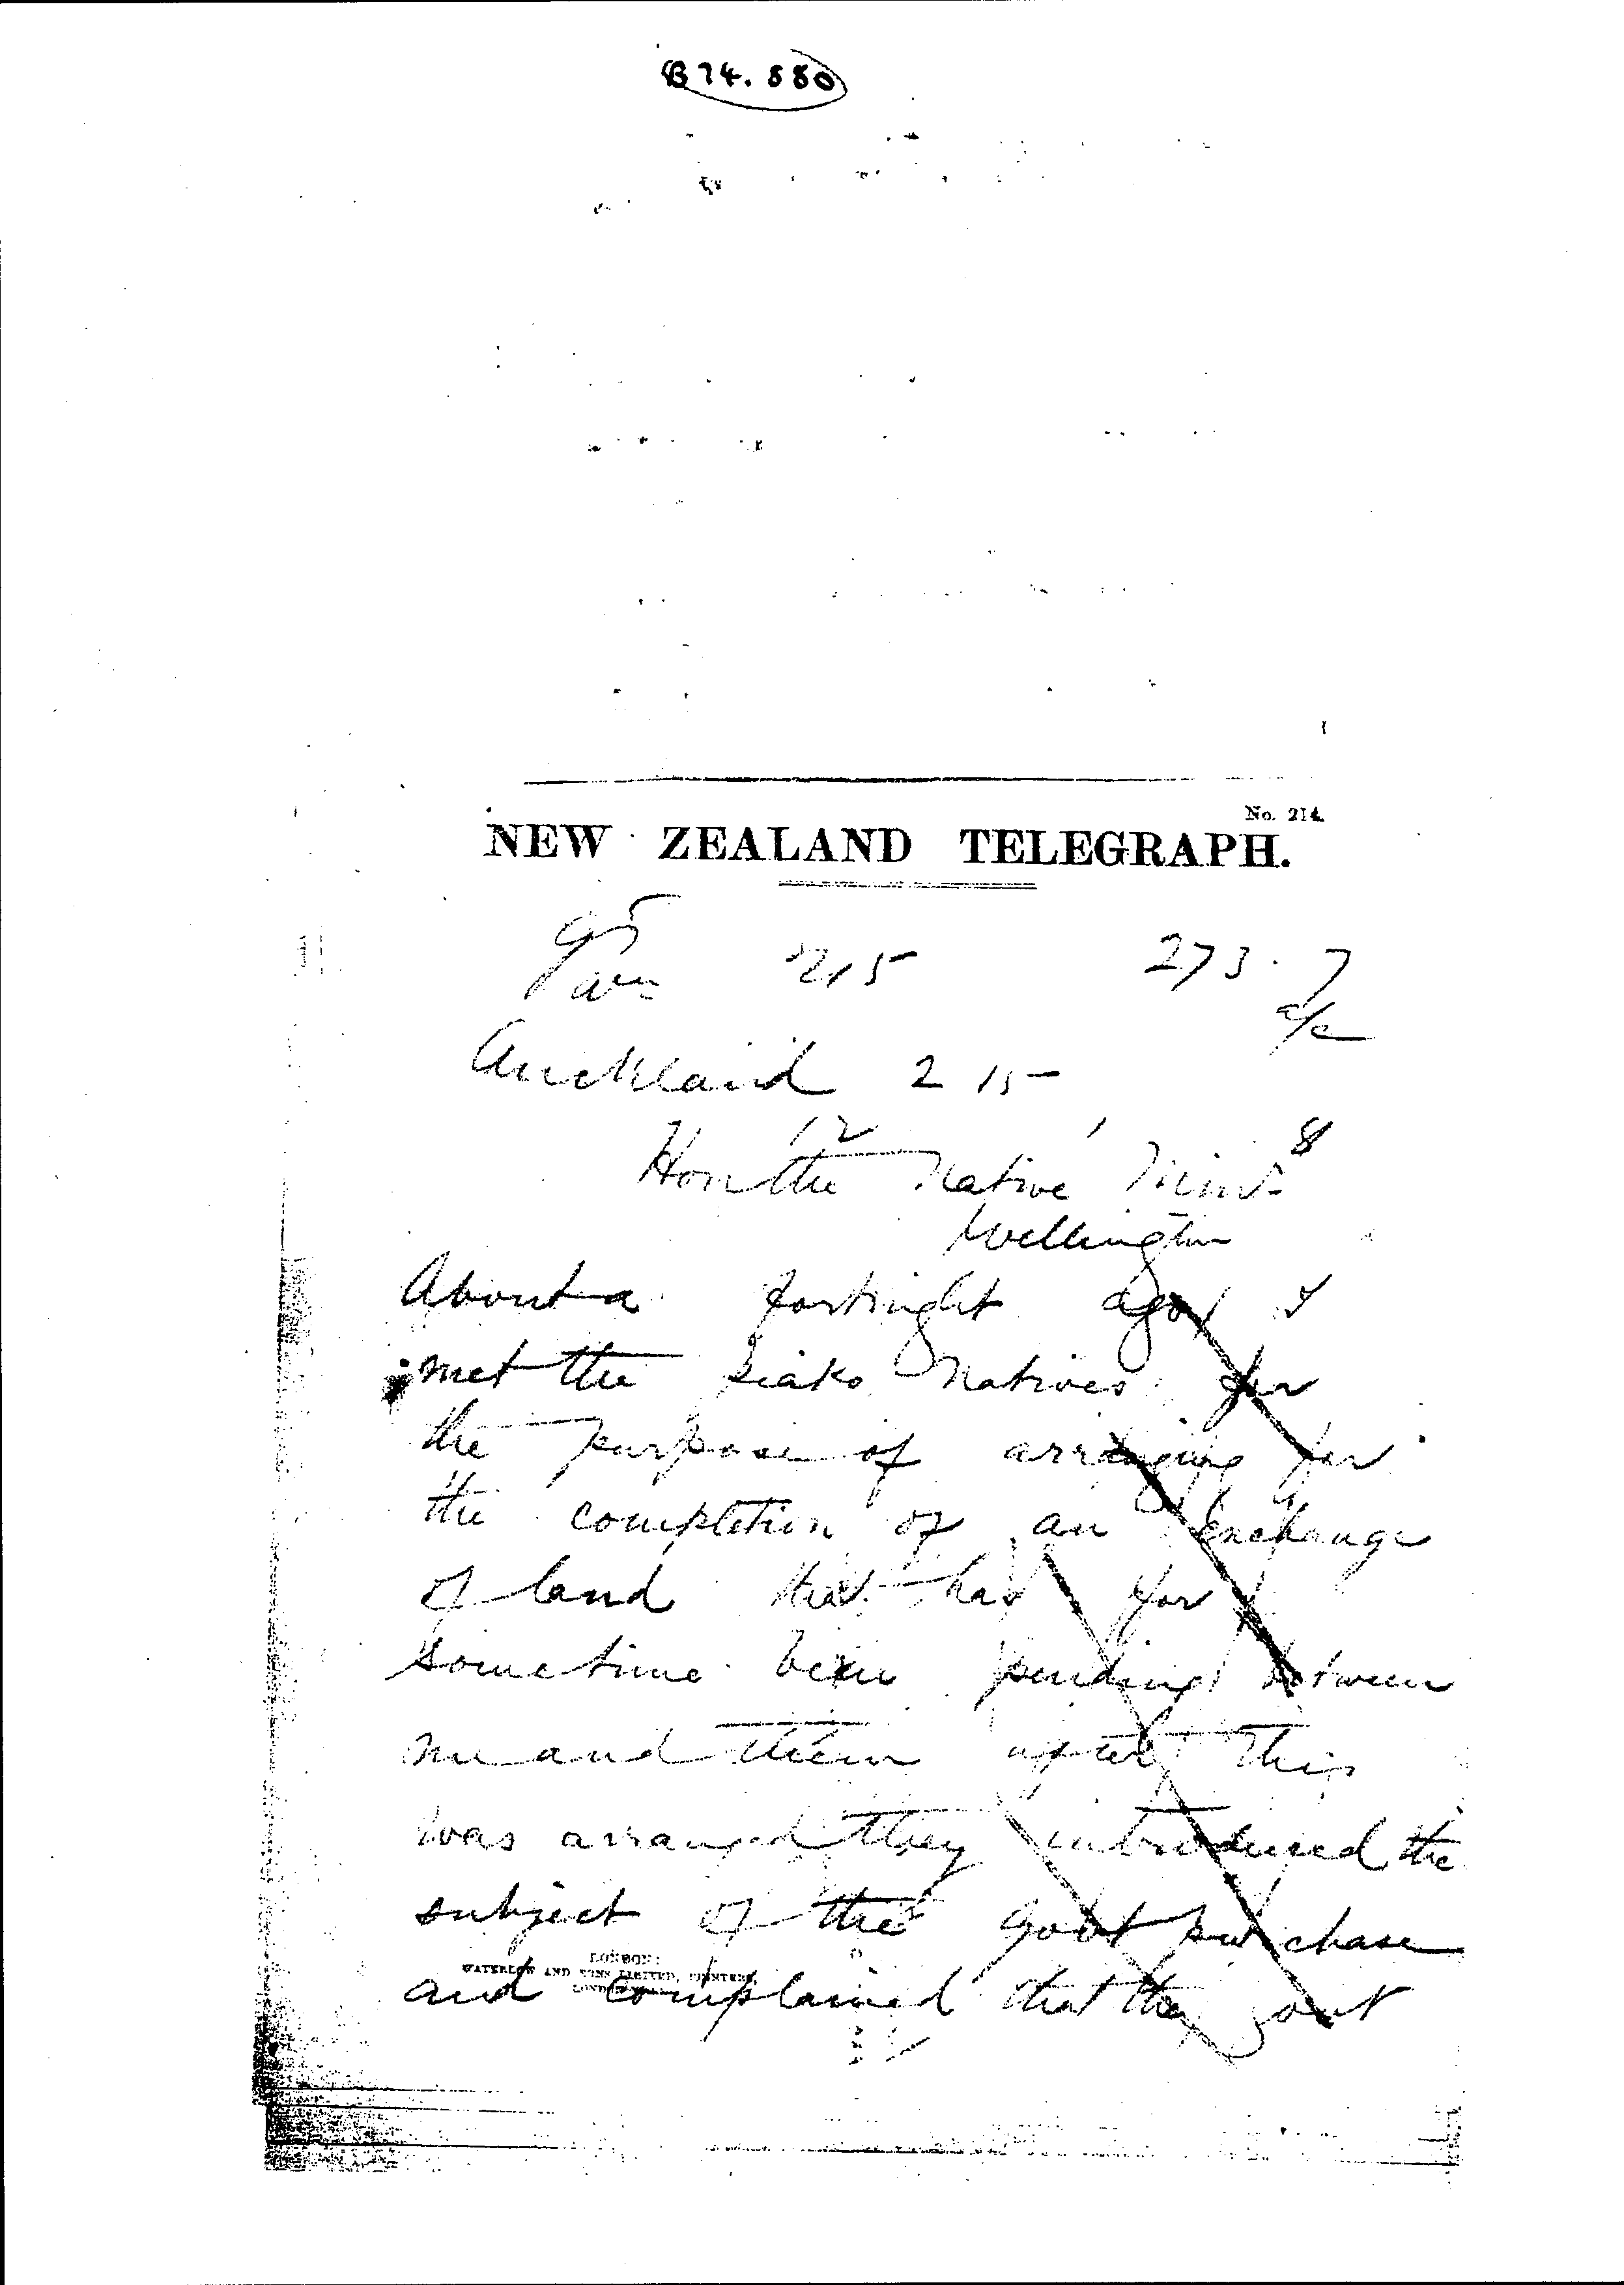 B74.880
No. 214.
NEW ZEALAND TELEGRAPH.
95
215 273. 7
a/c
Auckland 2 15
12 1 8
Hon the Native Minr
Wellington
About a fortnight ago I
met the Piako Natives for
the purpose of arranging for
the completion of an Exchange
of land that has for
sometime been pending between
me and them after this
was arranged they introduced the
subject of the Govt purchase
LONDON:
WATERLOW AND SONS LIMITED, PRINTERS,
and complained that the govt